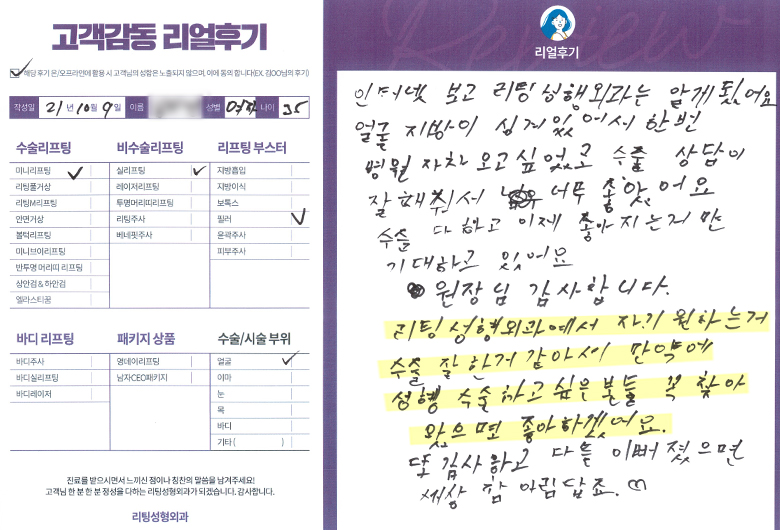 고객감동 리얼후기
해당 후기 온/오프라인에 활용 시 고객님의 성함은 노출되지 않으며, 이에 동의 합니다(EX. 김OO님의 후기)
작성일 21 년 10 월 9 일 이름 성별 여자 나이 35
수술리프팅
미니리프팅
리팅풀거상
리팅M리프팅
안면거상
볼턱리프팅
미니브이리프팅
반투명 머리띠 리프팅
상안검 & 하안검
엘라스티꿈
비수술리프팅
실리프팅
레이저리프팅
투명머리띠리프팅
리팅주사
베네핏주사
리프팅 부스터
지방흡입
지방이식
보톡스
필러
윤곽주사
피부주사
바디 리프팅
바디주사
바디실리프팅
바디레이저
패키지 상품
영데이리프팅
남자CEO패키지
수술/시술 부위
얼굴
이마
눈
목
바디
기타 ( )
진료를 받으시면서 느끼신 점이나 칭찬의 말씀을 남겨주세요!
고객님 한 분 한 분 정성을 다하는 리팅성형외과가 되겠습니다. 감사합니다.
리팅성형외과
Review
리얼후기
인터넷 보고 리팅성형외과는 알게 됬어요
얼굴 지방이 싱게 있어서 한번
병원 자차 오고 싶었고 수술 상담이
잘 해줘서 너무 좋았어요
수술 다 하고 이제 좋아지는거 만
기대하고 있어요
원장님 감사합니다.
리팅성형외과에서 자기 원하는거
수술 잘 한거 같아서 만약에
성형 수술하고 싶은 분들 꼭 찾아
왔으면 좋아하겠어요.
또 감사하고 다들 이뻐졌으면
세상 참 아림답죠. ♡